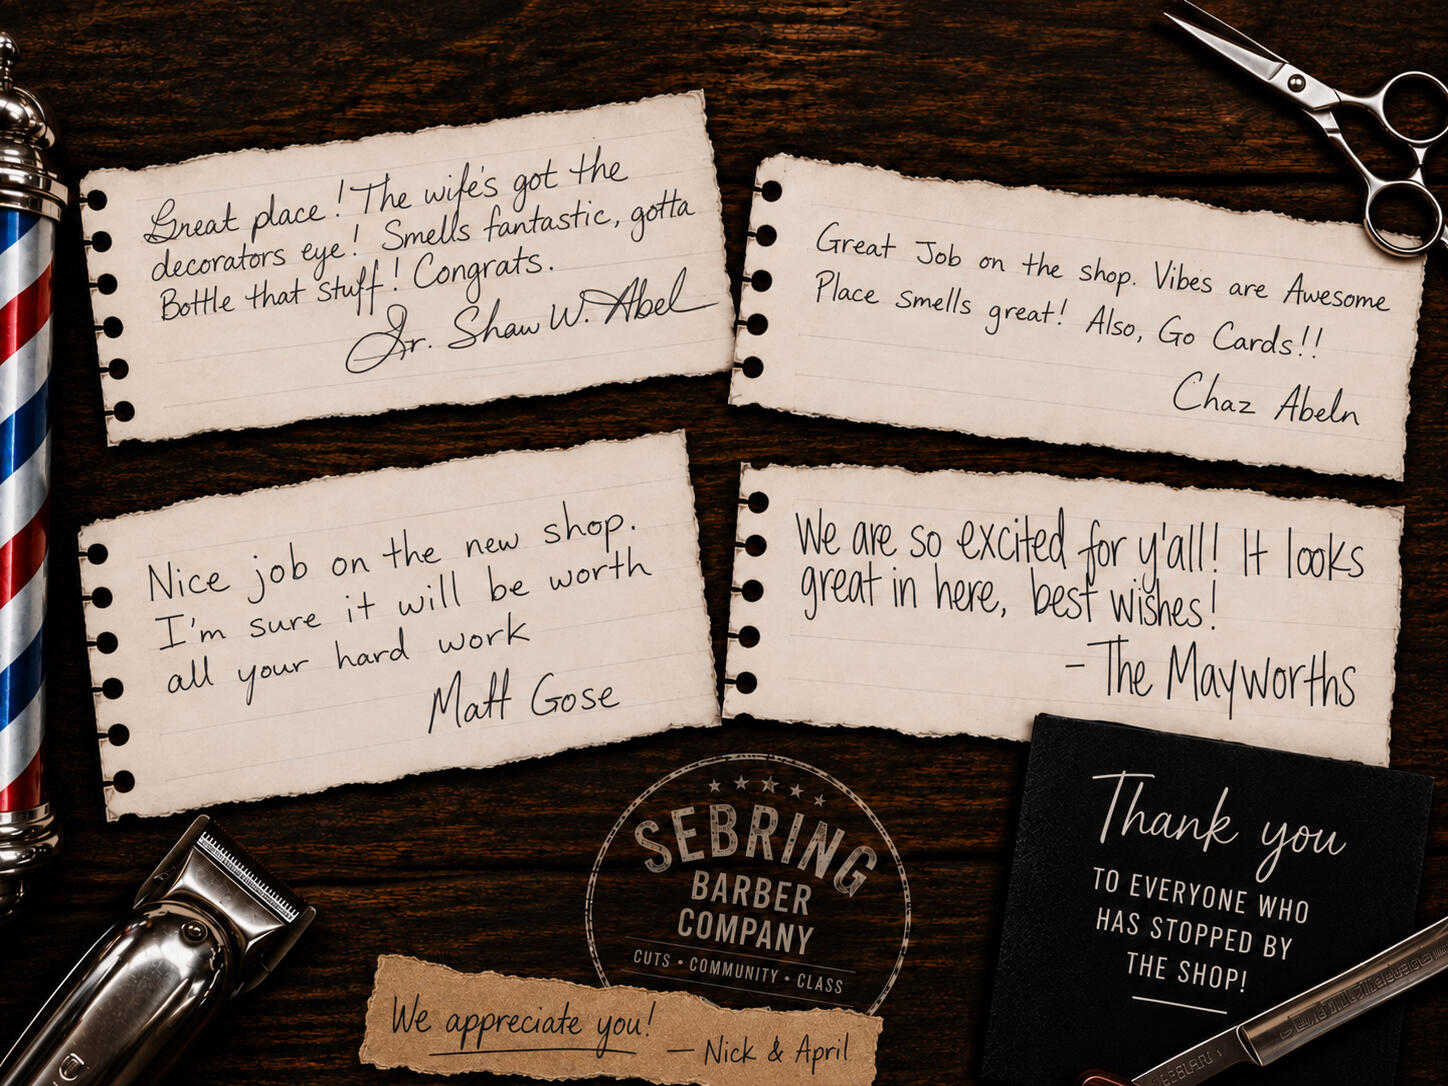 Great place! The wife's got the
decorators eye! Smells fantastic, gotta
Bottle that stuff! Congrats.
Jr. Shaw W. Abel
Great Job on the shop. Vibes are Awesome
Place smells great! Also, Go Cards!!
Chaz Abeln
Nice job on the new shop.
I'm sure it will be worth
all your hard work
Matt Gose
We are so excited for y'all! It looks
great in here, best wishes!
- The Mayworths
SEBRING
BARBER
COMPANY
CUTS • COMMUNITY • CLASS
Thank you
TO EVERYONE WHO
HAS STOPPED BY
THE SHOP!
We appreciate you!
— Nick & April